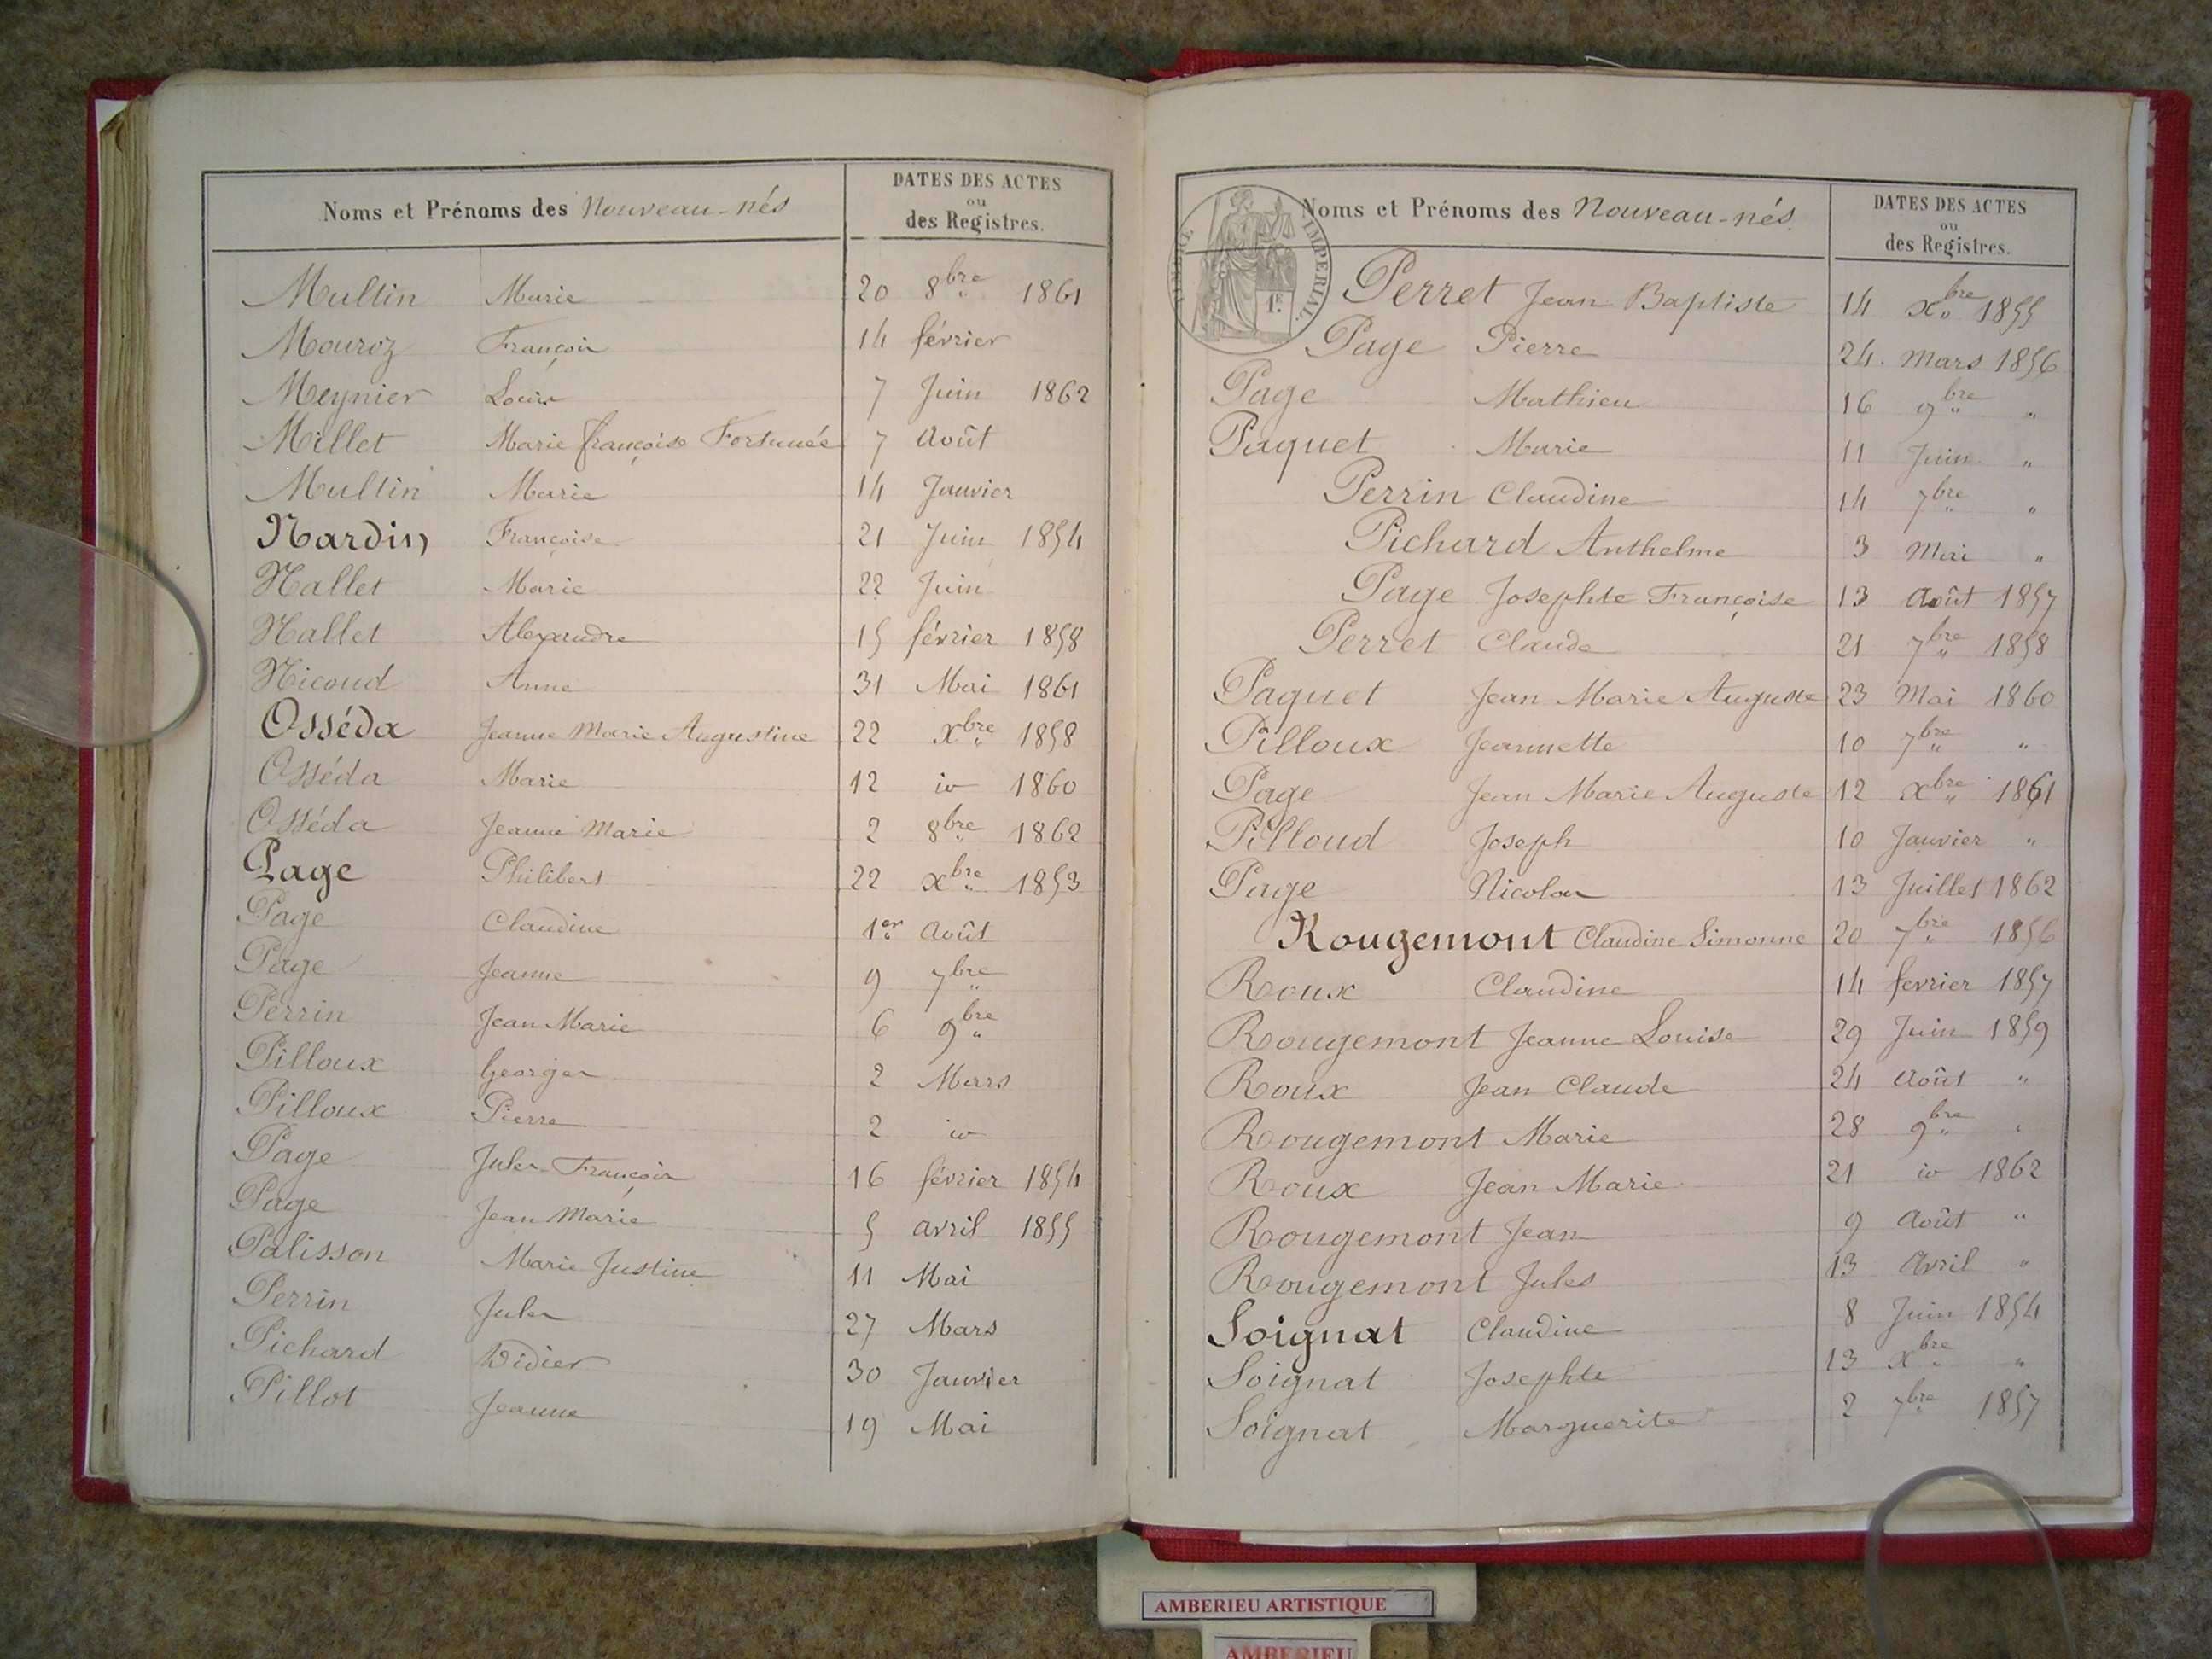 Noms et Prénoms des Nouveau-nés
DATES DES ACTES
ou
des Registres.
Multin Marie 20 8bre 1861
Mouroz François 14 février
Meynier Louis 7 Juin 1862
Millet Marie françoise Fortunée 7 Août
Multin Marie 14 Janvier
Nardin Françoise 21 Juin 1854
Nallet Marie 22 Juin
Nallet Alexandre 15 février 1858
Nicoud Anne 31 Mai 1861
Osséda Jeanne Marie Augustine 22 Xbre 1858
Osséda Marie 12 id 1860
Osséda Jeanne Marie 2 8bre 1862
Page Philibert 22 Xbre 1853
Page Claudine 1er Août
Page Jeanne 9 7bre
Perrin Jean Marie 6 9bre
Pilloux Georges 2 Mars
Pilloux Pierre 2 id
Page Jules François 16 février 1854
Page Jean Marie 5 avril 1855
Palisson Marie Justine 11 Mai
Perrin Jules 27 Mars
Pichard Didier 30 Janvier
Pillot Jeanne 19 Mai
TIMBRE IMPERIAL.
1F.
Noms et Prénoms des Nouveau-nés.
DATES DES ACTES
ou
des Registres.
Perret Jean Baptiste 14 Xbre 1855
Page Pierre 24. Mars 1856
Page Mathieu 16 9bre "
Paquet Marie 11 Juin "
Perrin Claudine 14 7bre "
Pichard Anthelme 3 Mai "
Page Josephte Françoise 13 Août 1857
Perret Claude 21 7bre 1858
Paquet Jean Marie Auguste 23 Mai 1860
Pilloux Jeannette 10 7bre "
Page Jean Marie Auguste 12 Xbre 1861
Pilloud Joseph 10 Janvier "
Page Nicolas 13 Juillet 1862
Rougemont Claudine Simonne 20 7bre 1856
Roux Claudine 14 fevrier 1857
Rougemont Jeanne Louise 29 Juin 1859
Roux Jean Claude 24 Août "
Rougemont Marie 28 9bre "
Roux Jean Marie 21 id 1862
Rougemont Jean 9 Août "
Rougemont Jules 13 Avril "
Soignat Claudine 8 Juin 1854
Soignat Josephte 13 Xbre "
Soignat Marguerite 2 7bre 1857
AMBERIEU ARTISTIQUE
AMBERIEU